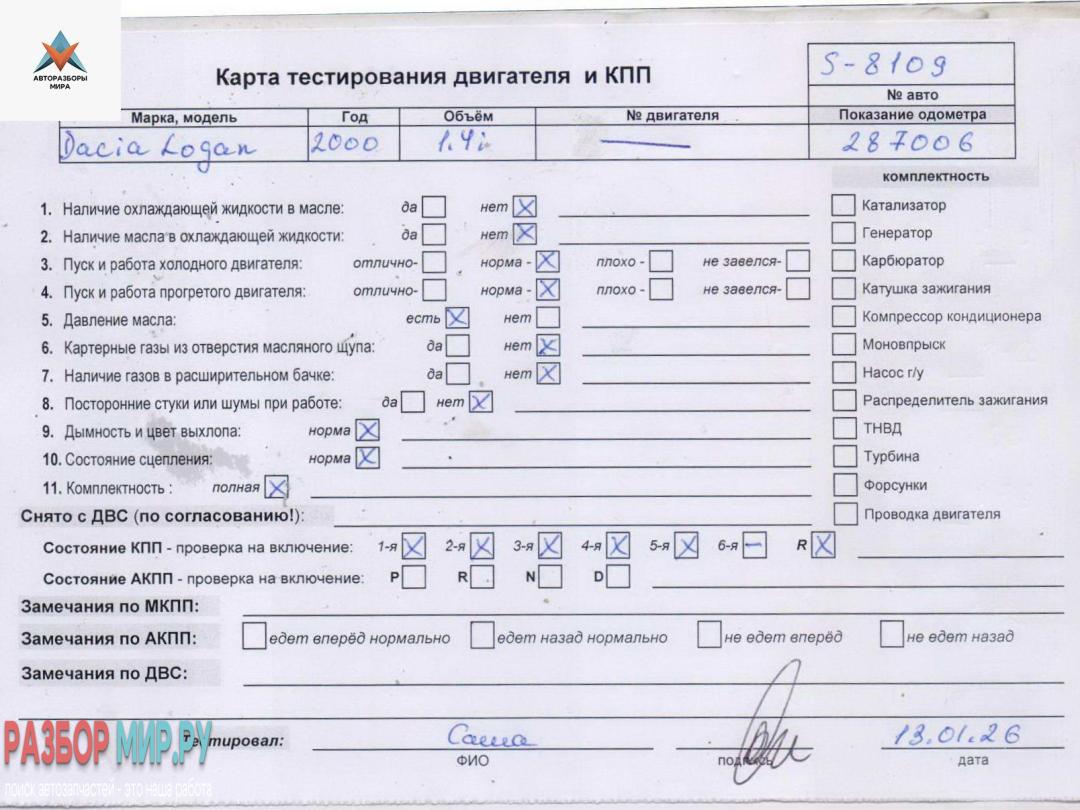 АВТОРАЗБОРЫ
МИРА
Карта тестирования двигателя и КПП
S-8109
№ авто
Марка, модель Год Объём № двигателя Показание одометра
Dacia Logan 2000 1.4i — 287006
комплектность
1. Наличие охлаждающей жидкости в масле: да нет X
Катализатор
2. Наличие масла в охлаждающей жидкости: да нет X
Генератор
3. Пуск и работа холодного двигателя: отлично- норма - X плохо - не завелся-
Карбюратор
4. Пуск и работа прогретого двигателя: отлично- норма - X плохо - не завелся-
Катушка зажигания
5. Давление масла: есть X нет
Компрессор кондиционера
6. Картерные газы из отверстия масляного щупа: да нет X
Моновпрыск
7. Наличие газов в расширительном бачке: да нет X
Насос г/у
8. Посторонние стуки или шумы при работе: да нет X
Распределитель зажигания
9. Дымность и цвет выхлопа: норма X
ТНВД
10. Состояние сцепления: норма X
Турбина
11. Комплектность : полная X
Форсунки
Снято с ДВС (по согласованию!):
Проводка двигателя
Состояние КПП - проверка на включение: 1-я X 2-я X 3-я X 4-я X 5-я X 6-я — R X
Состояние АКПП - проверка на включение: P R N D
Замечания по МКПП:
Замечания по АКПП: едет вперёд нормально едет назад нормально не едет вперёд не едет назад
Замечания по ДВС:
РАЗБОР МИР.РУ
поиск автозапчастей - это наша работа
Тестировал: Саша 13.01.26
ФИО подпись дата